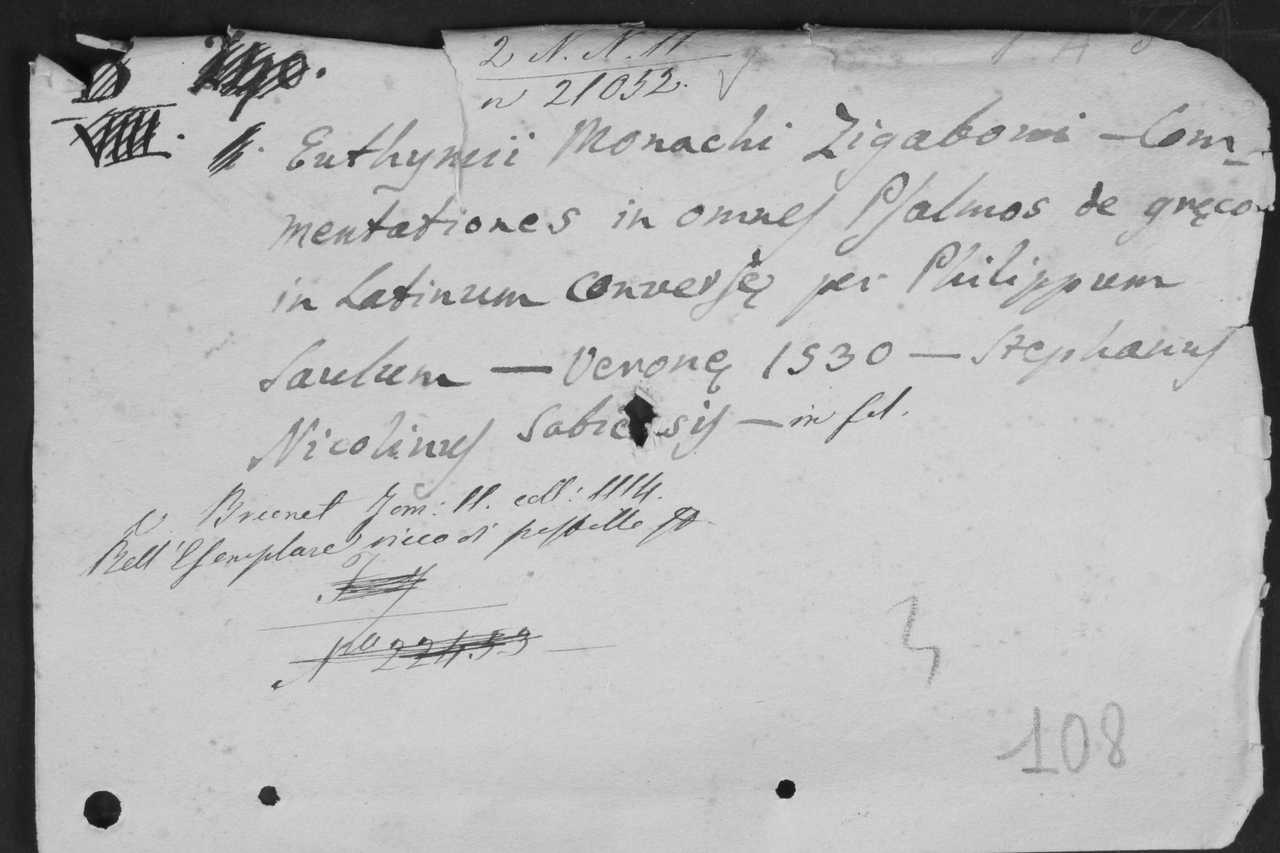 2 N. N. 11
n 21052.
Euthymii Monachi Zigaboni – Com-
mentationes in omneſ Pſalmos de gręco
in Latinum converſę per Philippum
Saulum — Veronę 1530 — Stephanuſ
Nicolinuſ Sabiensiſ — in fol.
V. Brunet Tom: II. coll: 1114.
Bell'Eſemplare
No 22453
108